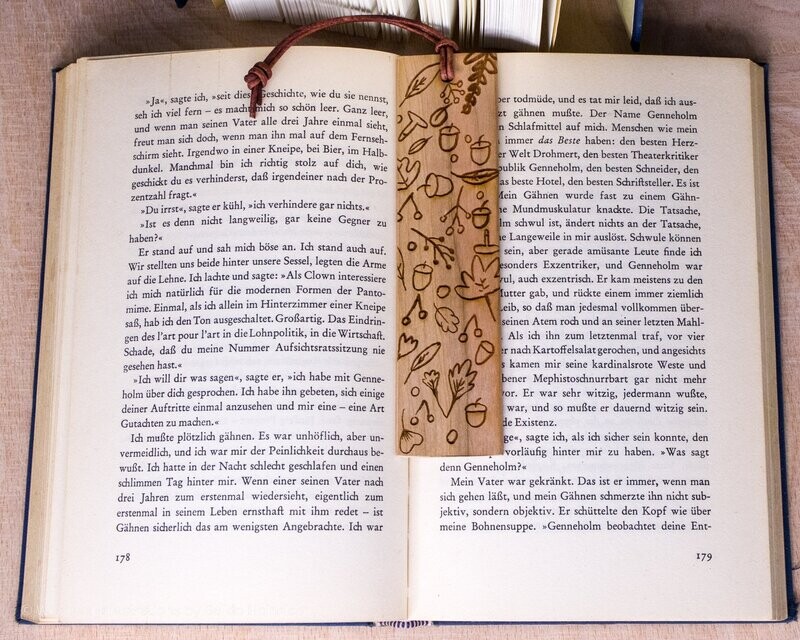 »Ja«, sagte ich, »seit diese Geschichte, wie du sie nennst,
seh ich viel fern – es macht mich so schön leer. Ganz leer,
und wenn man seinen Vater alle drei Jahre einmal sieht,
freut man sich doch, wenn man ihn mal auf dem Fernseh-
schirm sieht. Irgendwo in einer Kneipe, bei Bier, im Halb-
dunkel. Manchmal bin ich richtig stolz auf dich, wie
geschickt du es verhinderst, daß irgendeiner nach der Pro-
zentzahl fragt.«
»Du irrst«, sagte er kühl, »ich verhindere gar nichts.«
»Ist es denn nicht langweilig, gar keine Gegner zu
haben?«
Er stand auf und sah mich böse an. Ich stand auch auf.
Wir stellten uns beide hinter unsere Sessel, legten die Arme
auf die Lehne. Ich lachte und sagte: »Als Clown interessiere
ich mich natürlich für die modernen Formen der Panto-
mime. Einmal, als ich allein im Hinterzimmer einer Kneipe
saß, hab ich den Ton ausgeschaltet. Großartig. Das Eindrin-
gen des l'art pour l'art in die Lohnpolitik, in die Wirtschaft.
Schade, daß du meine Nummer Aufsichtsratssitzung nie
gesehen hast.«
»Ich will dir was sagen«, sagte er, »ich habe mit Genne-
holm über dich gesprochen. Ich habe ihn gebeten, sich einige
deiner Auftritte einmal anzusehen und mir eine – eine Art
Gutachten zu machen.«
Ich mußte plötzlich gähnen. Es war unhöflich, aber un-
vermeidlich, und ich war mir der Peinlichkeit durchaus be-
wußt. Ich hatte in der Nacht schlecht geschlafen und einen
schlimmen Tag hinter mir. Wenn einer seinen Vater nach
drei Jahren zum erstenmal wiedersieht, eigentlich zum
erstenmal in seinem Leben ernsthaft mit ihm redet – ist
Gähnen sicherlich das am wenigsten Angebrachte. Ich war
178
ber todmüde, und es tat mir leid, daß ich aus-
gähnen mußte. Der Name Genneholm
Schlafmittel auf mich. Menschen wie mein
immer das Beste haben: den besten Herz-
Welt Drohmert, den besten Theaterkritiker
publik Genneholm, den besten Schneider, den
as beste Hotel, den besten Schriftsteller. Es ist
Mein Gähnen wurde fast zu einem Gähn-
Mundmuskulatur knackte. Die Tatsache,
lm schwul ist, ändert nichts an der Tatsache,
Langeweile in mir auslöst. Schwule können
sein, aber gerade amüsante Leute finde ich
esonders Exzentriker, und Genneholm war
ul, auch exzentrisch. Er kam meistens zu den
Mutter gab, und rückte einem immer ziemlich
Leib, so daß man jedesmal vollkommen über-
seinen Atem roch und an seiner letzten Mahl-
Als ich ihn zum letztenmal traf, vor vier
er nach Kartoffelsalat gerochen, und angesichts
kamen mir seine kardinalsrote Weste und
bener Mephistoschnurrbart gar nicht mehr
vor. Er war sehr witzig, jedermann wußte,
war, und so mußte er dauernd witzig sein.
de Existenz.
ge«, sagte ich, als ich sicher sein konnte, den
vorläufig hinter mir zu haben. »Was sagt
denn Genneholm?«
Mein Vater war gekränkt. Das ist er immer, wenn man
sich gehen läßt, und mein Gähnen schmerzte ihn nicht sub-
jektiv, sondern objektiv. Er schüttelte den Kopf wie über
meine Bohnensuppe. »Genneholm beobachtet deine Ent-
179